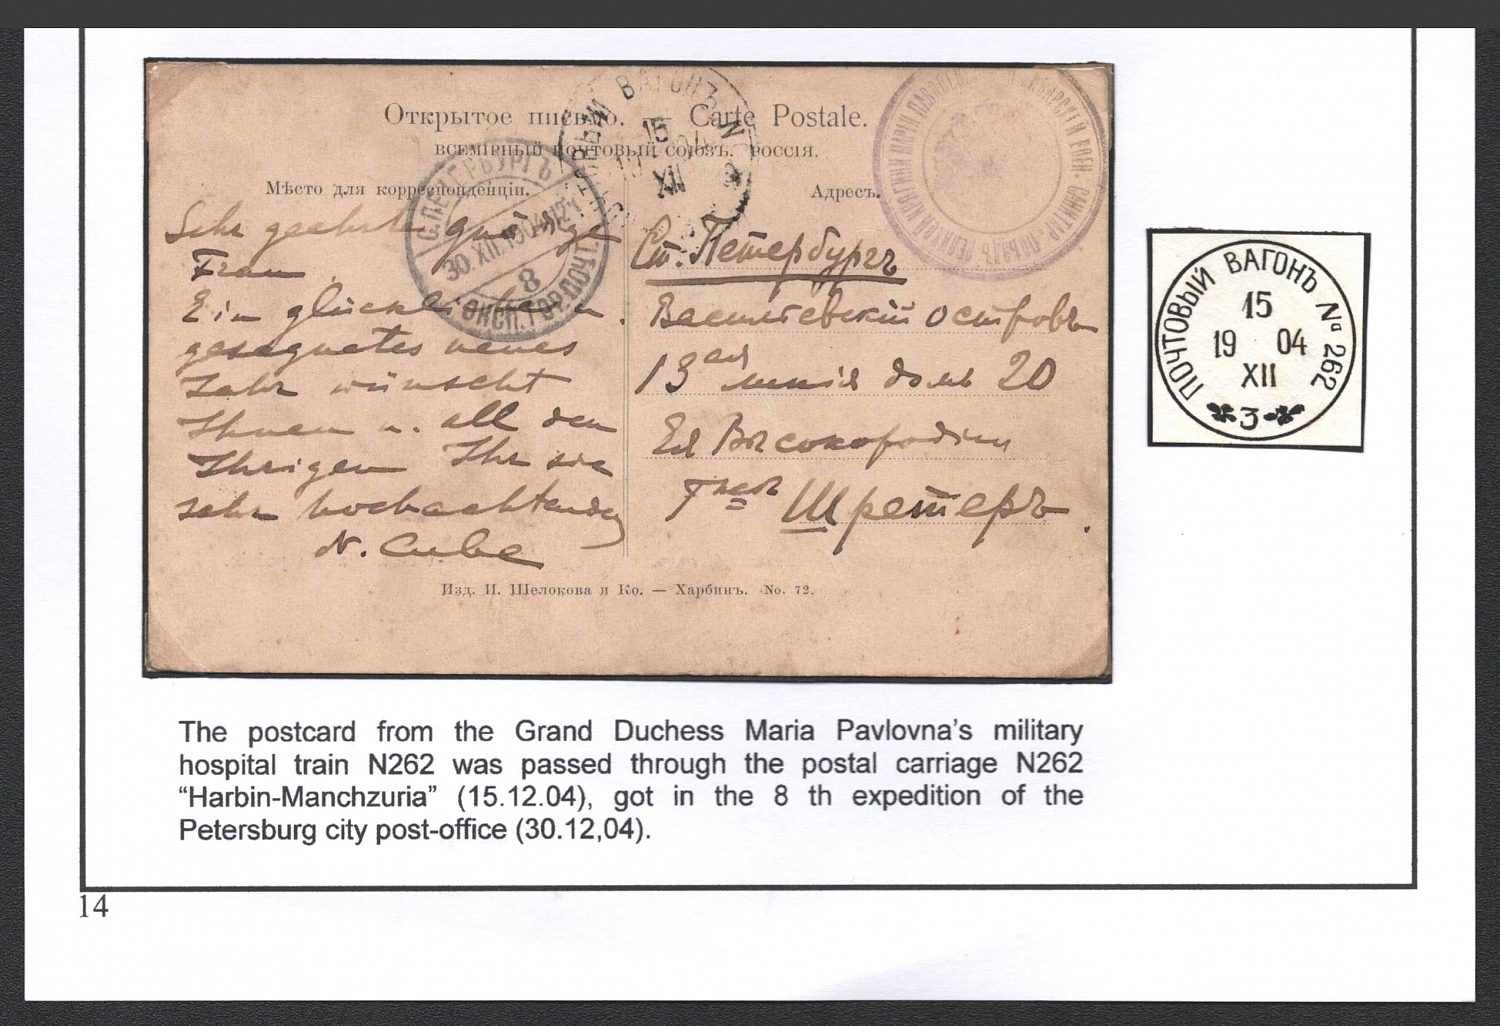 Открытое письмо. — Carte Postale.
ВСЕМІРНЫЙ ПОЧТОВЫЙ СОЮЗЪ. РОССІЯ.
Мѣсто для корреспонденціи.
Адресъ.
ПОЧТОВЫЙ ВАГОНЪ N
15
XII
С.ПЕТЕРБУРГЪ
30 XII.1904
8
ЭКСП.ГОР.ПОЧТ.
Sehr geehrte gnädige
Frau
Ein glückliches u.
gesegnetes neues
Jahr wünscht
Ihnen u. all den
Ihrigen Ihr sie
sehr hochachtender
N. Cube
Ст. Петербургъ
Василевскій островъ
13ая линія домъ 20
Ея Высокородію
Гжѣ Шретеръ.
Изд. И. Шелокова и Ко. — Харбинъ. No. 72.
ПОЧТОВЫЙ ВАГОНЪ № 262
15
19 04
XII
3
The postcard from the Grand Duchess Maria Pavlovna's military
hospital train N262 was passed through the postal carriage N262
“Harbin-Manchzuria” (15.12.04), got in the 8 th expedition of the
Petersburg city post-office (30.12,04).
14